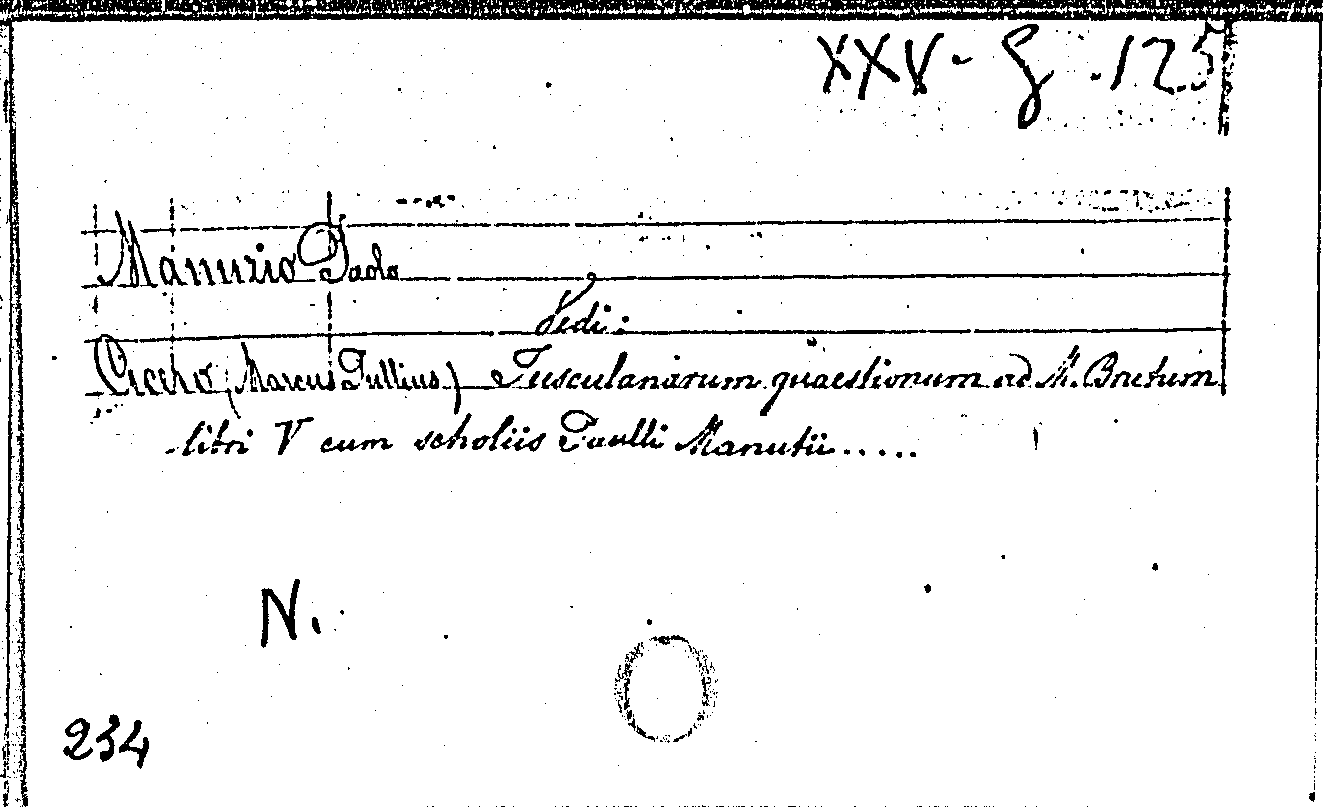 XXV - g . 125
Manuzio Paolo
Vedi:
Cicero (Marcus Tullius) Tusculanarum quaestionum ad M. Brutum
libri V cum scholiis Paulli Manutii.....
N.
234